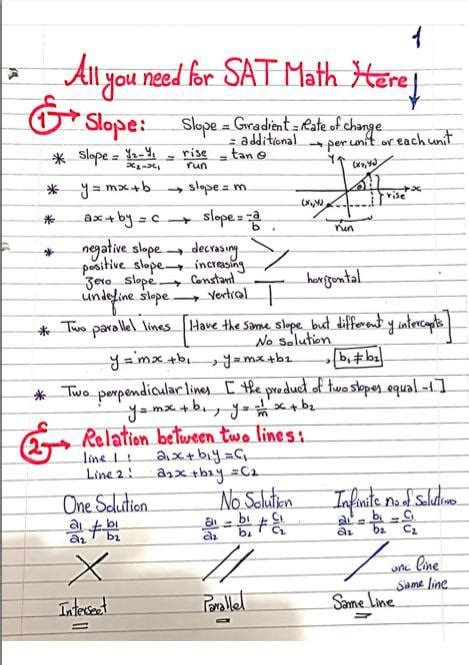 1
All you need for SAT Math Here ↓
1 → Slope: Slope = Gradient = Rate of change
= additional → per unit or each unit
* slope = y₂-y₁/x₂-x₁ = rise/run = tan θ
y (x₂,y₂)
θ x
* y = mx+b → slope = m
(x₁,y₁) rise
run
* ax + by = c → slope = -a/b .
* negative slope → decrasing
positive slope → increasing
Zero slope → Constant — horizontal
undefine slope → vertical |
* Two parallel lines [Have the same slope but different y intercepts]
No solution
y = mx+b₁ , y = mx+b₂ , b₁ ≠ b₂
* Two perpendicular lines [ the product of two slopes equal -1]
y = mx + b₁ , y = -1/m x + b₂
2 → Relation between two lines:
line 1 : a₁x + b₁y = C₁
Line 2 : a₂x + b₂y = C₂
One Solution No Solution Infinite no of solutions
a₁/a₂ ≠ b₁/b₂ a₁/a₂ = b₁/b₂ ≠ C₁/C₂ a₁/a₂ = b₁/b₂ = C₁/C₂
one line
same line
Intersect Parallel Same Line